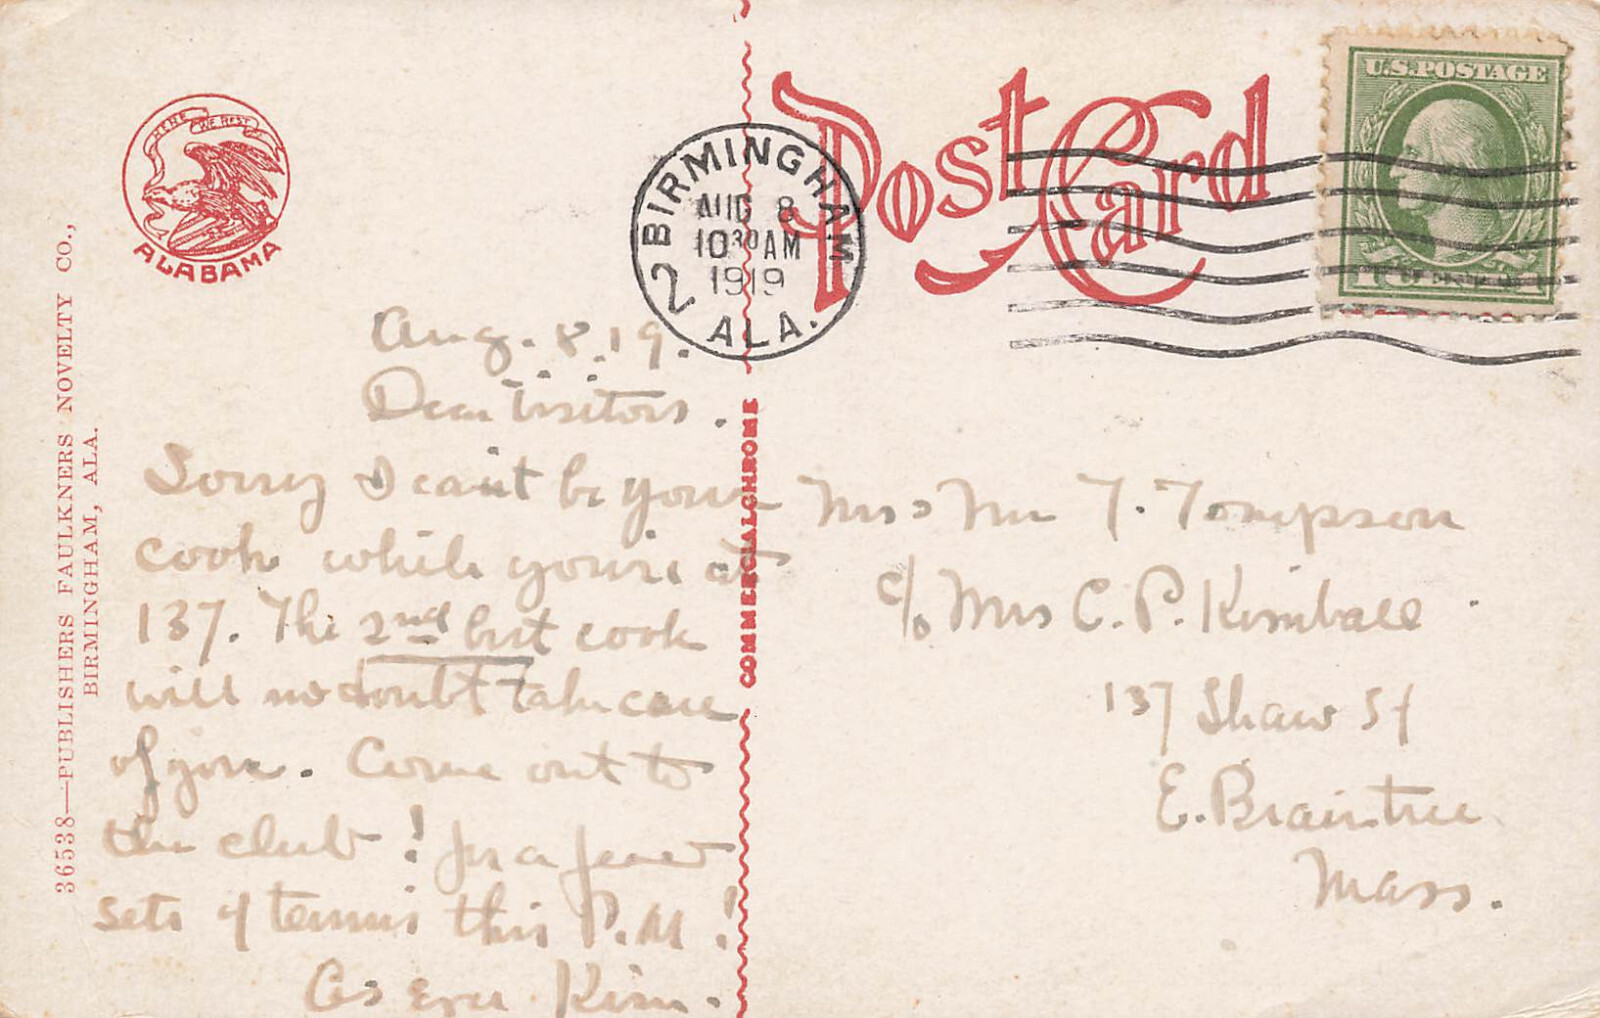 HERE WE REST
ALABAMA
36538—PUBLISHERS FAULKNERS NOVELTY CO.,
BIRMINGHAM, ALA.
Aug. 8. 19.
Dear Visitors.
Sorry I can't be your
cook while you're at
137. The 2nd best cook
will no doubt take care
of you. Come out to
the club! for a few
sets of tennis this P.M!
As ever Kim.
COMMERCIALCHROME
Post Card
BIRMINGHAM
AUG 8
10 30 AM
1919
2
ALA.
U.S. POSTAGE
Mrs & Mr T. Tompson
c/o Mrs C. P. Kimball
137 Shaw St
E. Braintree
Mass.